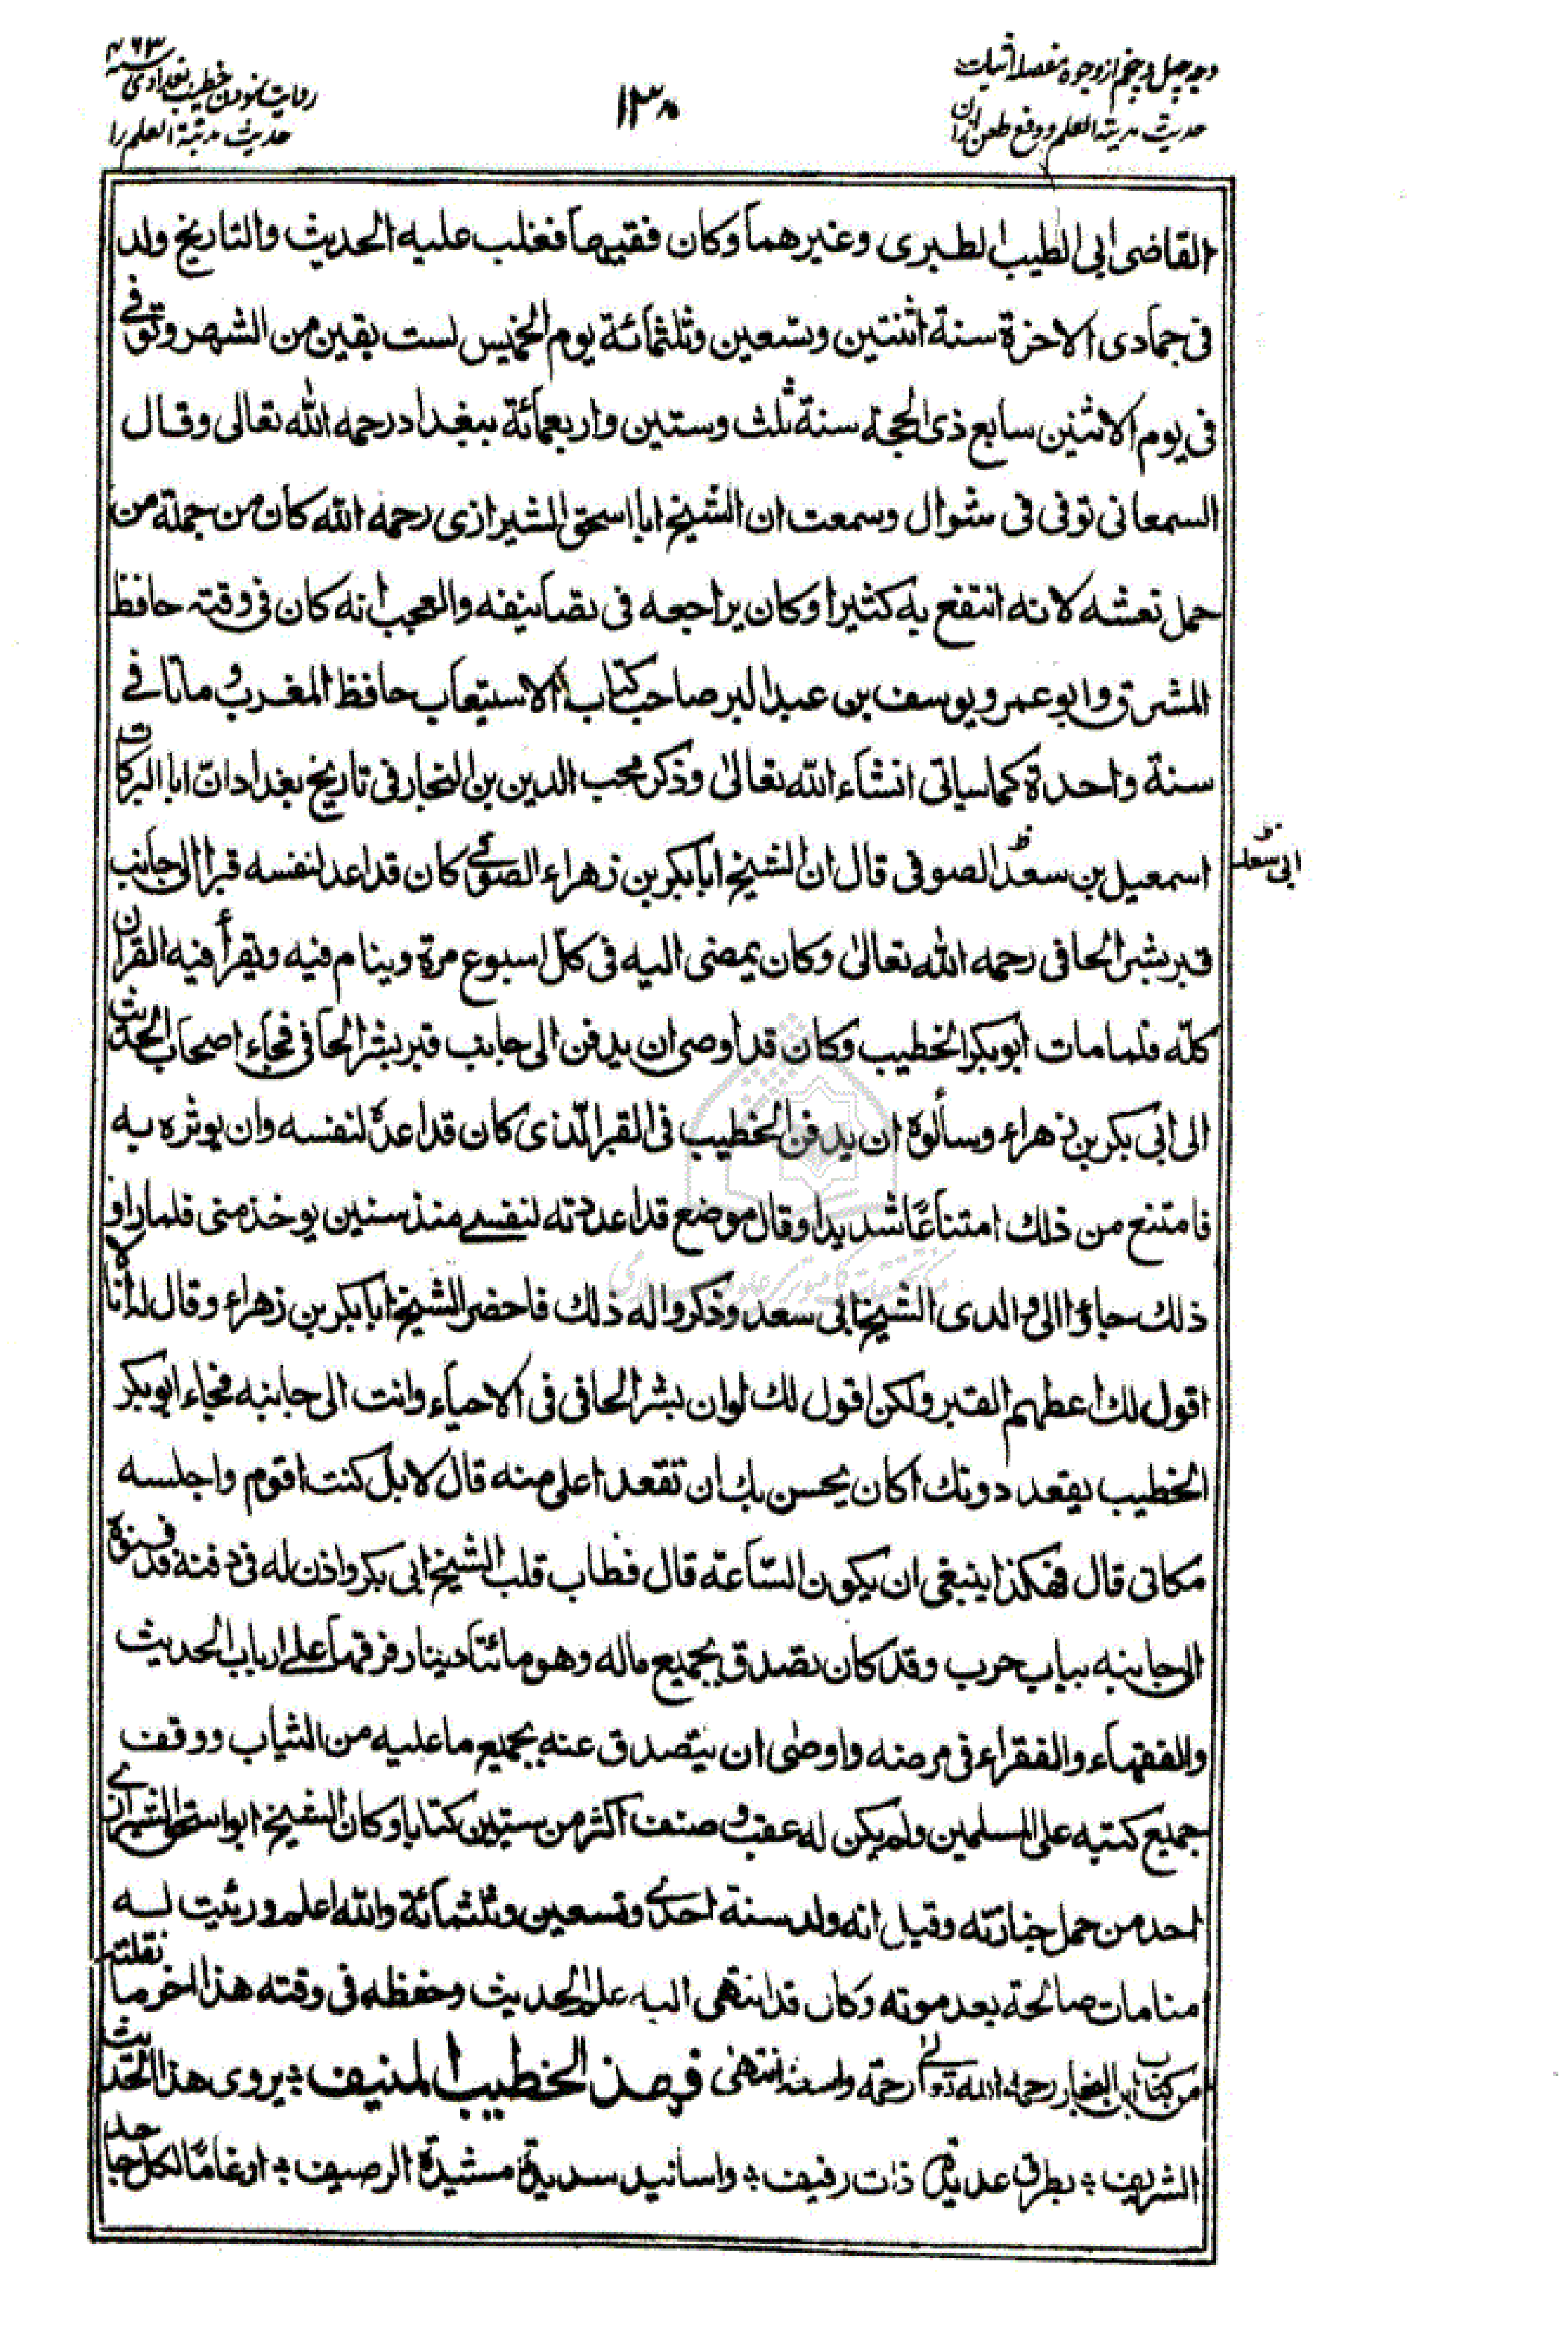 وجه چهل و پنجم از وجوه مفصله اثبات
حدیث مدینة العلم و دفع طعن ازان
١٣٨
روایت نمودن خطیب بغدادی سنه ۴۶۳
حدیث مدینة العلم را
القاضى ابى الطيب الطبرى وغيرهما وكان فقيها فغلب عليه الحديث والتاريخ ولد
فى جمادى الاخرة سنة اثنتين وتسعين وثلثمائة يوم الخميس لست بقين من الشهر وتوفى
فى يوم الاثنين سابع ذى الحجة سنة ثلث وستين واربعمائة ببغداد رحمه الله تعالى وقال
السمعانى توفى فى شوال وسمعت ان الشيخ ابا اسحق الشيرازى رحمه الله كان من جملة من
حمل نعشه لانه انتفع به كثيرا وكان يراجعه فى تصانيفه والعجب انه كان فى وقته حافظ
المشرق وابو عمرو يوسف بن عبد البر صاحب كتاب الاستيعاب حافظ المغرب وماتا فى
سنة واحدة كما سياتى انشاء الله تعالى وذكر محب الدين بن النجار فى تاريخ بغداد ان ابا البركات
اسمعيل بن سعد الصوفى قال ان الشيخ ابا بكر بن زهراء الصوفى كان قد اعد لنفسه قبرا الى جانب
ابى سعد
قبر بشر الحافى رحمه الله تعالى وكان يمضى اليه فى كل اسبوع مرة وينام فيه ويقرأ فيه القران
كله فلما مات ابو بكر الخطيب وكان قد اوصى ان يدفن الى جانب قبر بشر الحافى فجاء اصحاب الحديث
الى ابى بكر بن زهراء وسألوه ان يدفن الخطيب فى القبر الّذى كان قد اعدّه لنفسه وان يوثره به
فامتنع من ذلك امتناعًا شديدا وقال موضع قد اعددته لنفسى منذ سنين يوخذ منى فلما راوا
ذلك جاءوا الى والدى الشيخ ابى سعد وذكروا له ذلك فاحضر الشيخ ابا بكر بن زهراء وقال له انا لا
اقول لك اعطهم القبر ولكن اقول لك لو ان بشر الحافى فى الاحياء وانت الى جانبه فجاء ابو بكر
الخطيب يقعد دونك اكان يحسن بك ان تقعد اعلى منه قال لا بل كنت اقوم واجلسه
مكانى قال فهكذا ينبغى ان يكون السّاعة قال فطاب قلب الشيخ ابى بكر واذن له فى دفنه فدفنوه
الى جانبه بباب حرب وقد كان تصدق بجميع ماله وهو مائتا دينار فرقها على ارباب الحديث
والفقهاء والفقراء فى مرضه واوصى ان يتصدق عنه بجميع ما عليه من الثياب ووقف
جميع كتبه على المسلمين ولم يكن له عقب وصنف اكثر من ستين كتابا وكان الشيخ ابو اسحق الشيرازى
احد من حمل جنازته وقيل انه ولد سنة احدى وتسعين وثلثمائة والله اعلم ورئيت له
منامات صالحة بعد موته وكان قد انتهى اليه علم الحديث وحفظه فى وقته هذا اخر ما نقلته
من كتاب ابن النجار رحمه الله تعالى رحمة واسعة انتهى فهذا الخطيب المنيف ؛ يروى هذا الحديث
الشريف ؛ بطرق عديدة ذات رفيف ؛ واسانيد سديدة مشيدة الرصيف ؛ ارغامًا لكل جاحد